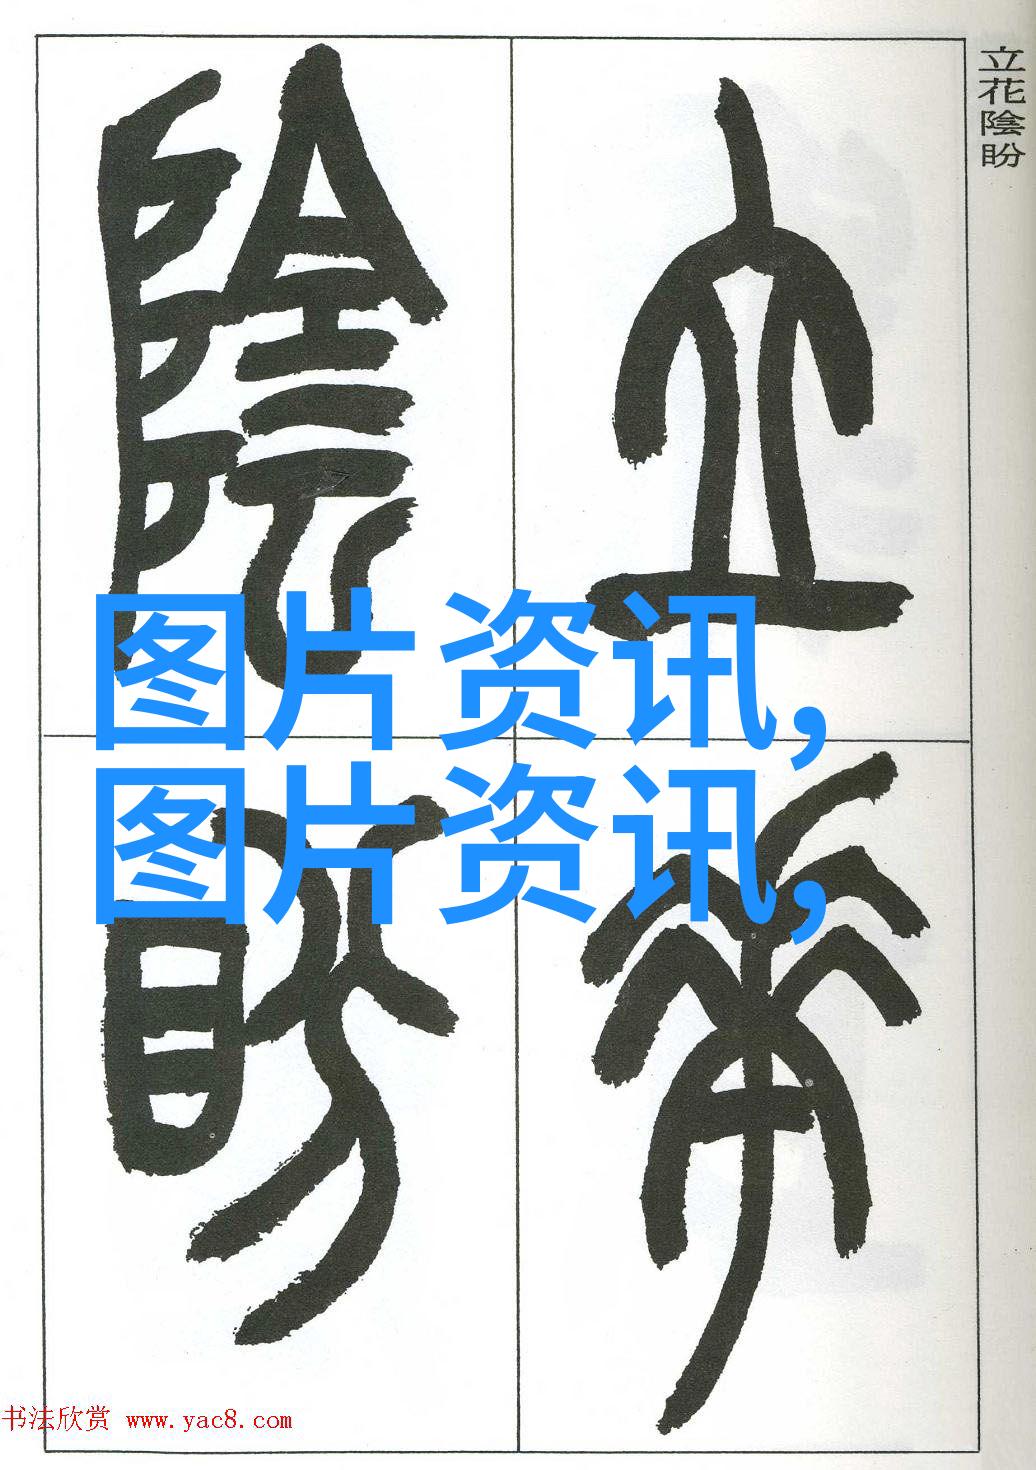 立花陰盼
立
花
陰
盼
图片资讯,
图片资讯,
书法欣赏 www.yac8.com